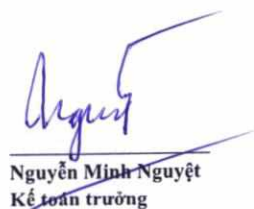 Nguyễn Minh Nguyệt
Kế toán trưởng